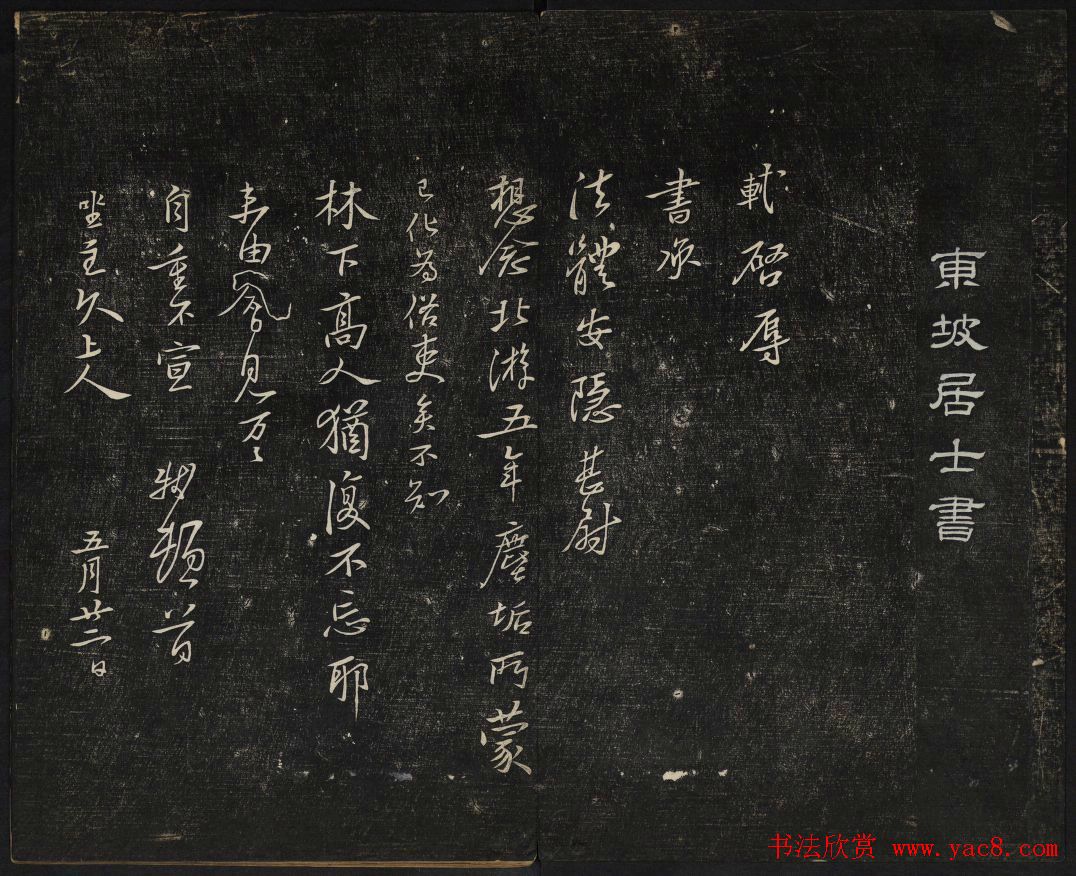 東坡居士書
軾啓辱
書承
法體安隱甚尉
想念北游五年塵垢所蒙
已化爲俗吏矣不知
林下高人猶復不忘耶
未由會見万々
自重不宣 軾頓首
坐主久上人 五月廿二日
书法欣赏 www.yac8.com